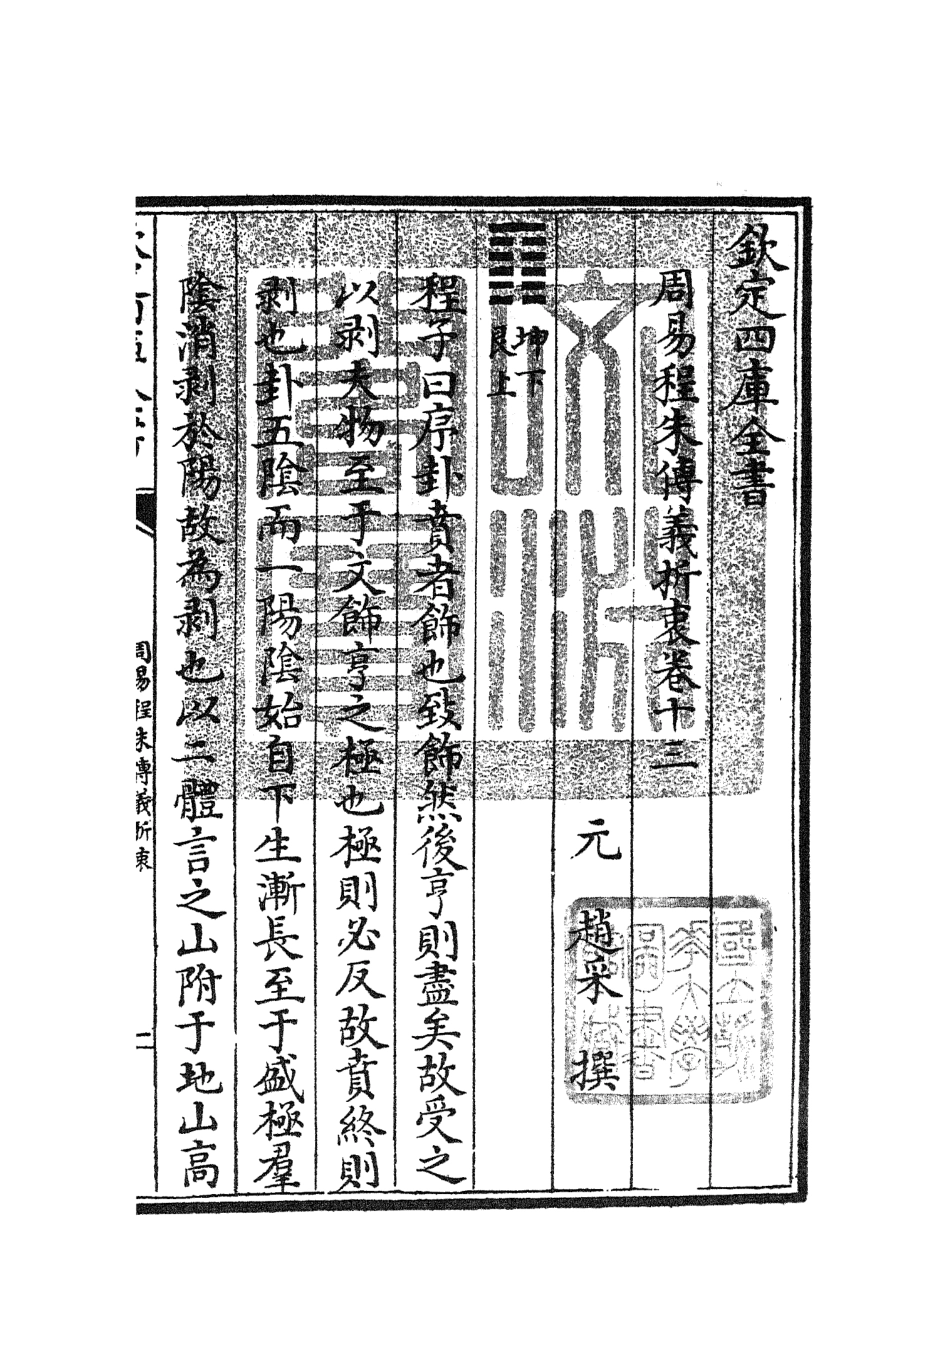 欽定四庫全書
周易程朱傳義折衷卷十三
元 趙采 撰
䷖ 坤下
艮上
程子曰序卦賁者飾也致飾然後亨則盡矣故受之
以剥夫物至于文飾亨之極也極則必反故賁終則
剥也卦五陰而一陽陰始自下生漸長至于盛極羣
陰消剥於陽故為剥也以二體言之山附于地山高
周易程朱傳義折衷